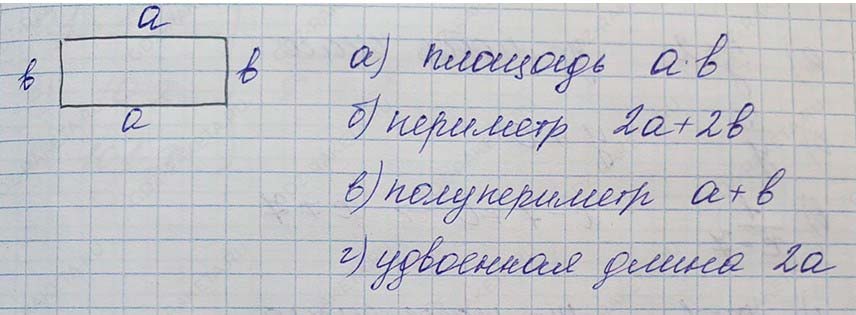 а
в в
а
а) площадь а·в
б) периметр 2а+2в
в) полупериметр а+в
г) удвоенная длина 2а